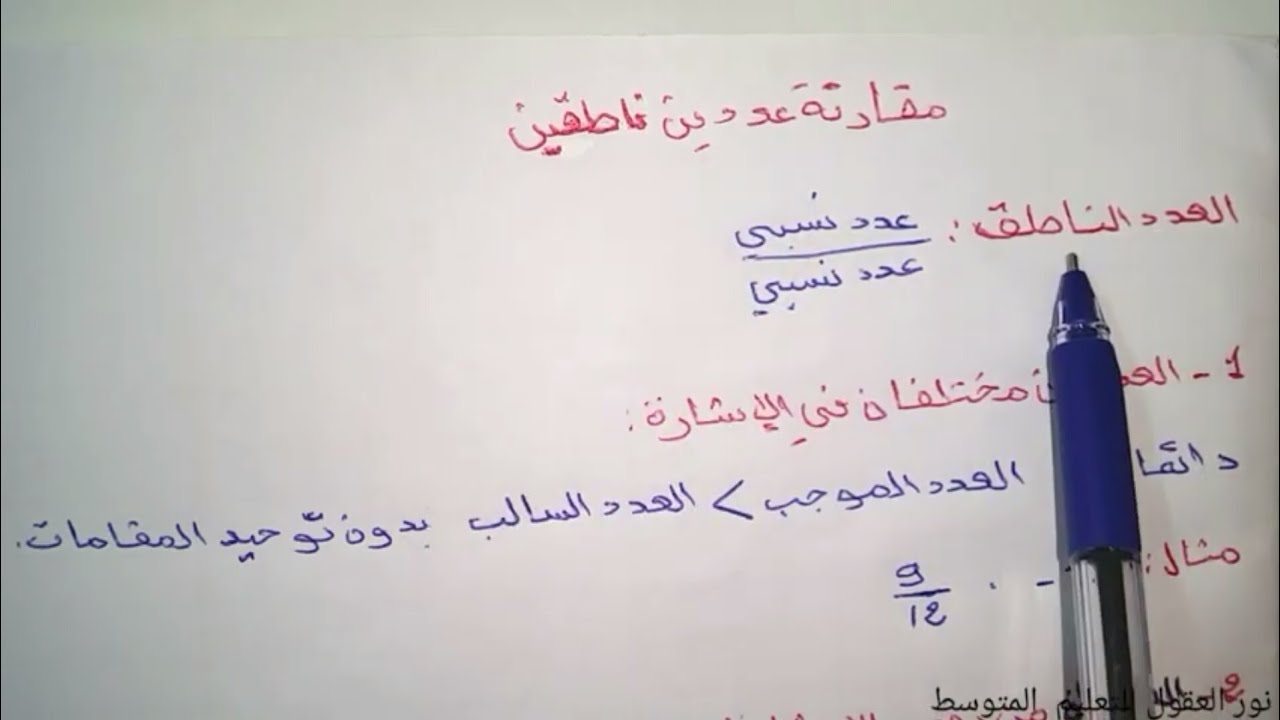 مقارنة عددين ناطقين
العدد الناطق : عدد نسبي
عدد نسبي
1 - مختلفان في الإشارة :
العدد الموجب > العدد السالب بدون توحيد المقامات.
مثال : - . 9
12
2 -
نور العقول للتعليم المتوسط